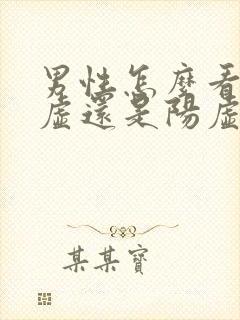 男性怎麼看
虛還是陽虛
某某寶